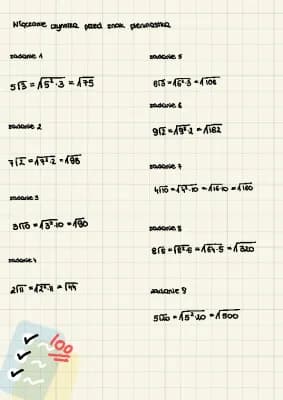 Włączanie czynnika przed znak pierwiastka
zadanie 1
5√3 = √5²·3 = √75
zadanie 2
7√2 = √7²·2 = √98
zadanie 3
3√10 = √3²·10 = √90
zadanie 4
2√11 = √2²·11 = √44
zadanie 5
6√3 = √6²·3 = √108
zadanie 6
9√2 = √9²·2 = √182
zadanie 7
4√10 = √4²·10 = √16·10 = √160
zadanie 8
8√5 = √8²·5 = √64·5 = √320
zadanie 9
5√20 = √5²·20 = √500
100